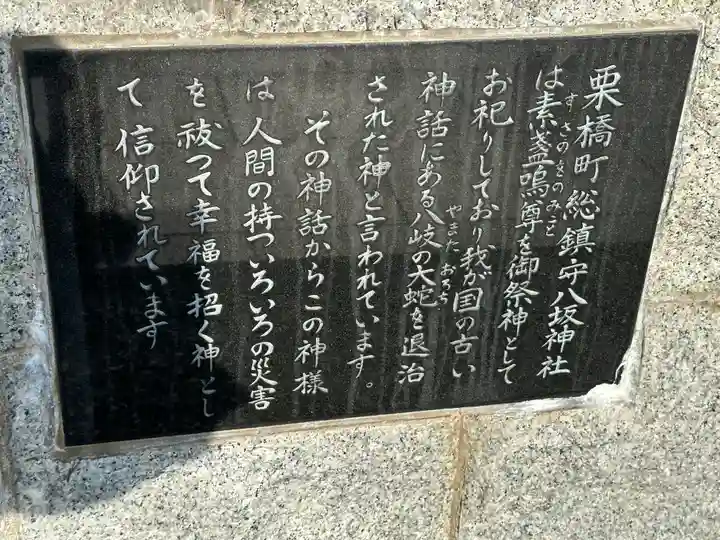 栗橋町総鎮守八坂神社
は素盞嗚尊を御祭神として
すさのをのみこと
お祀りしており我が国の古い
神話にある八岐の大蛇を退治
やまた おろち
された神と言われています。
その神話からこの神様
は人間の持ついろいろの災害
を祓つて幸福を招く神とし
て信仰されています